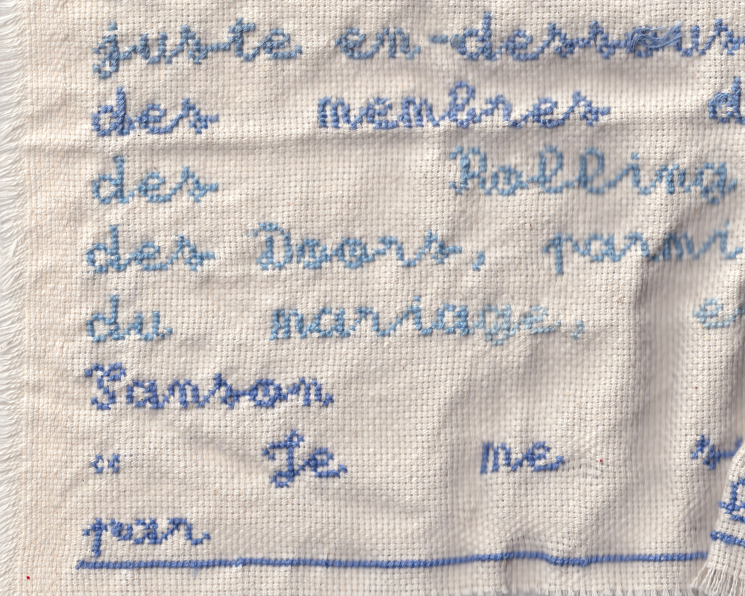 juste en-dessous
des membres d
des Rolling
des Doors, parmi
du mariage, e
Sanson
« Je me s
par